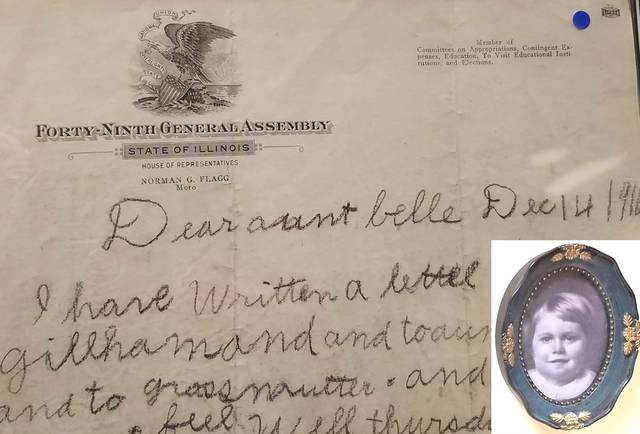 Member of
Committees on Appropriations, Contingent Ex-
penses, Education, To Visit Educational Insti-
tutions, and Elections.
FORTY-NINTH GENERAL ASSEMBLY
STATE OF ILLINOIS
HOUSE OF REPRESENTATIVES
NORMAN G. FLAGG
Moro
Dear aaunt belle Dec 14 1916
I have Written a lettel
gillhamand and toaun
and to grossmutter. and
feel Well thursd